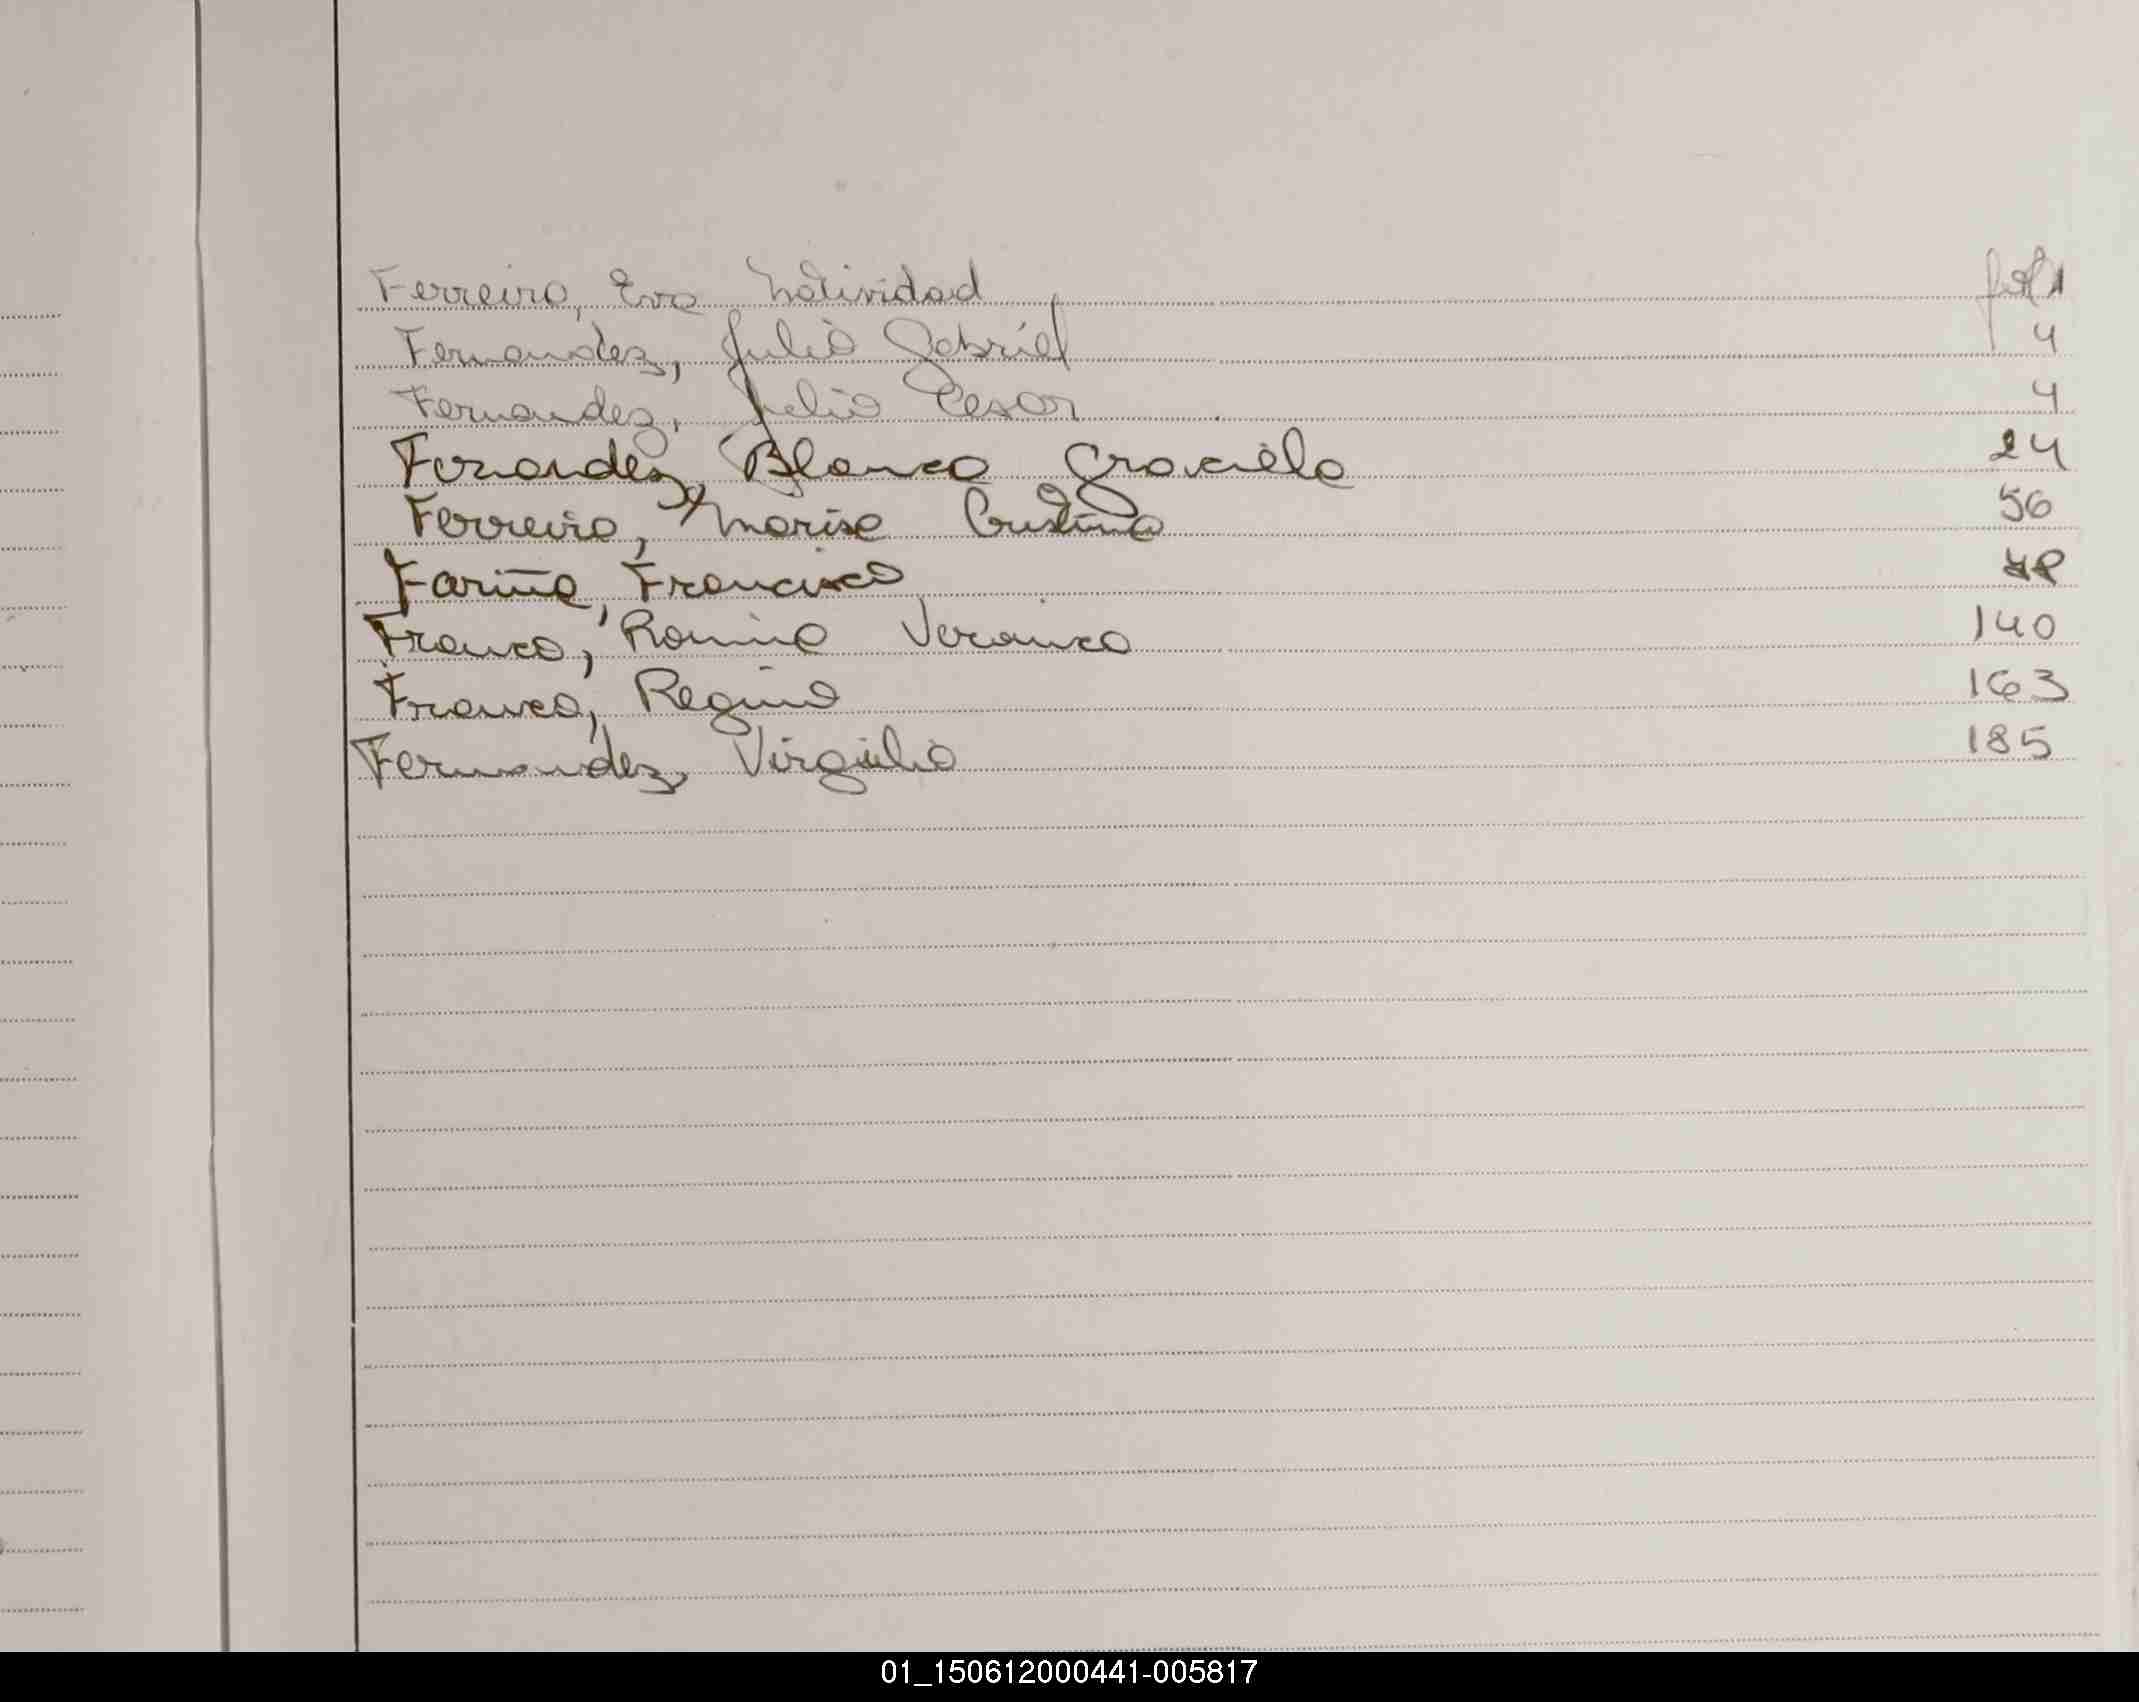 Ferreiro, Eva Natividad fol 1
Fernandez, Julio Gabriel 4
Fernandez, Julio Cesar 4
Fernandez, Blanca Graciela 24
Ferreiro, Marisa Cristina 56
Fariña, Francisco
Franco, Romina Veronica 140
Franco, Regina 163
Fernandez, Virgilio 185
01_150612000441-005817